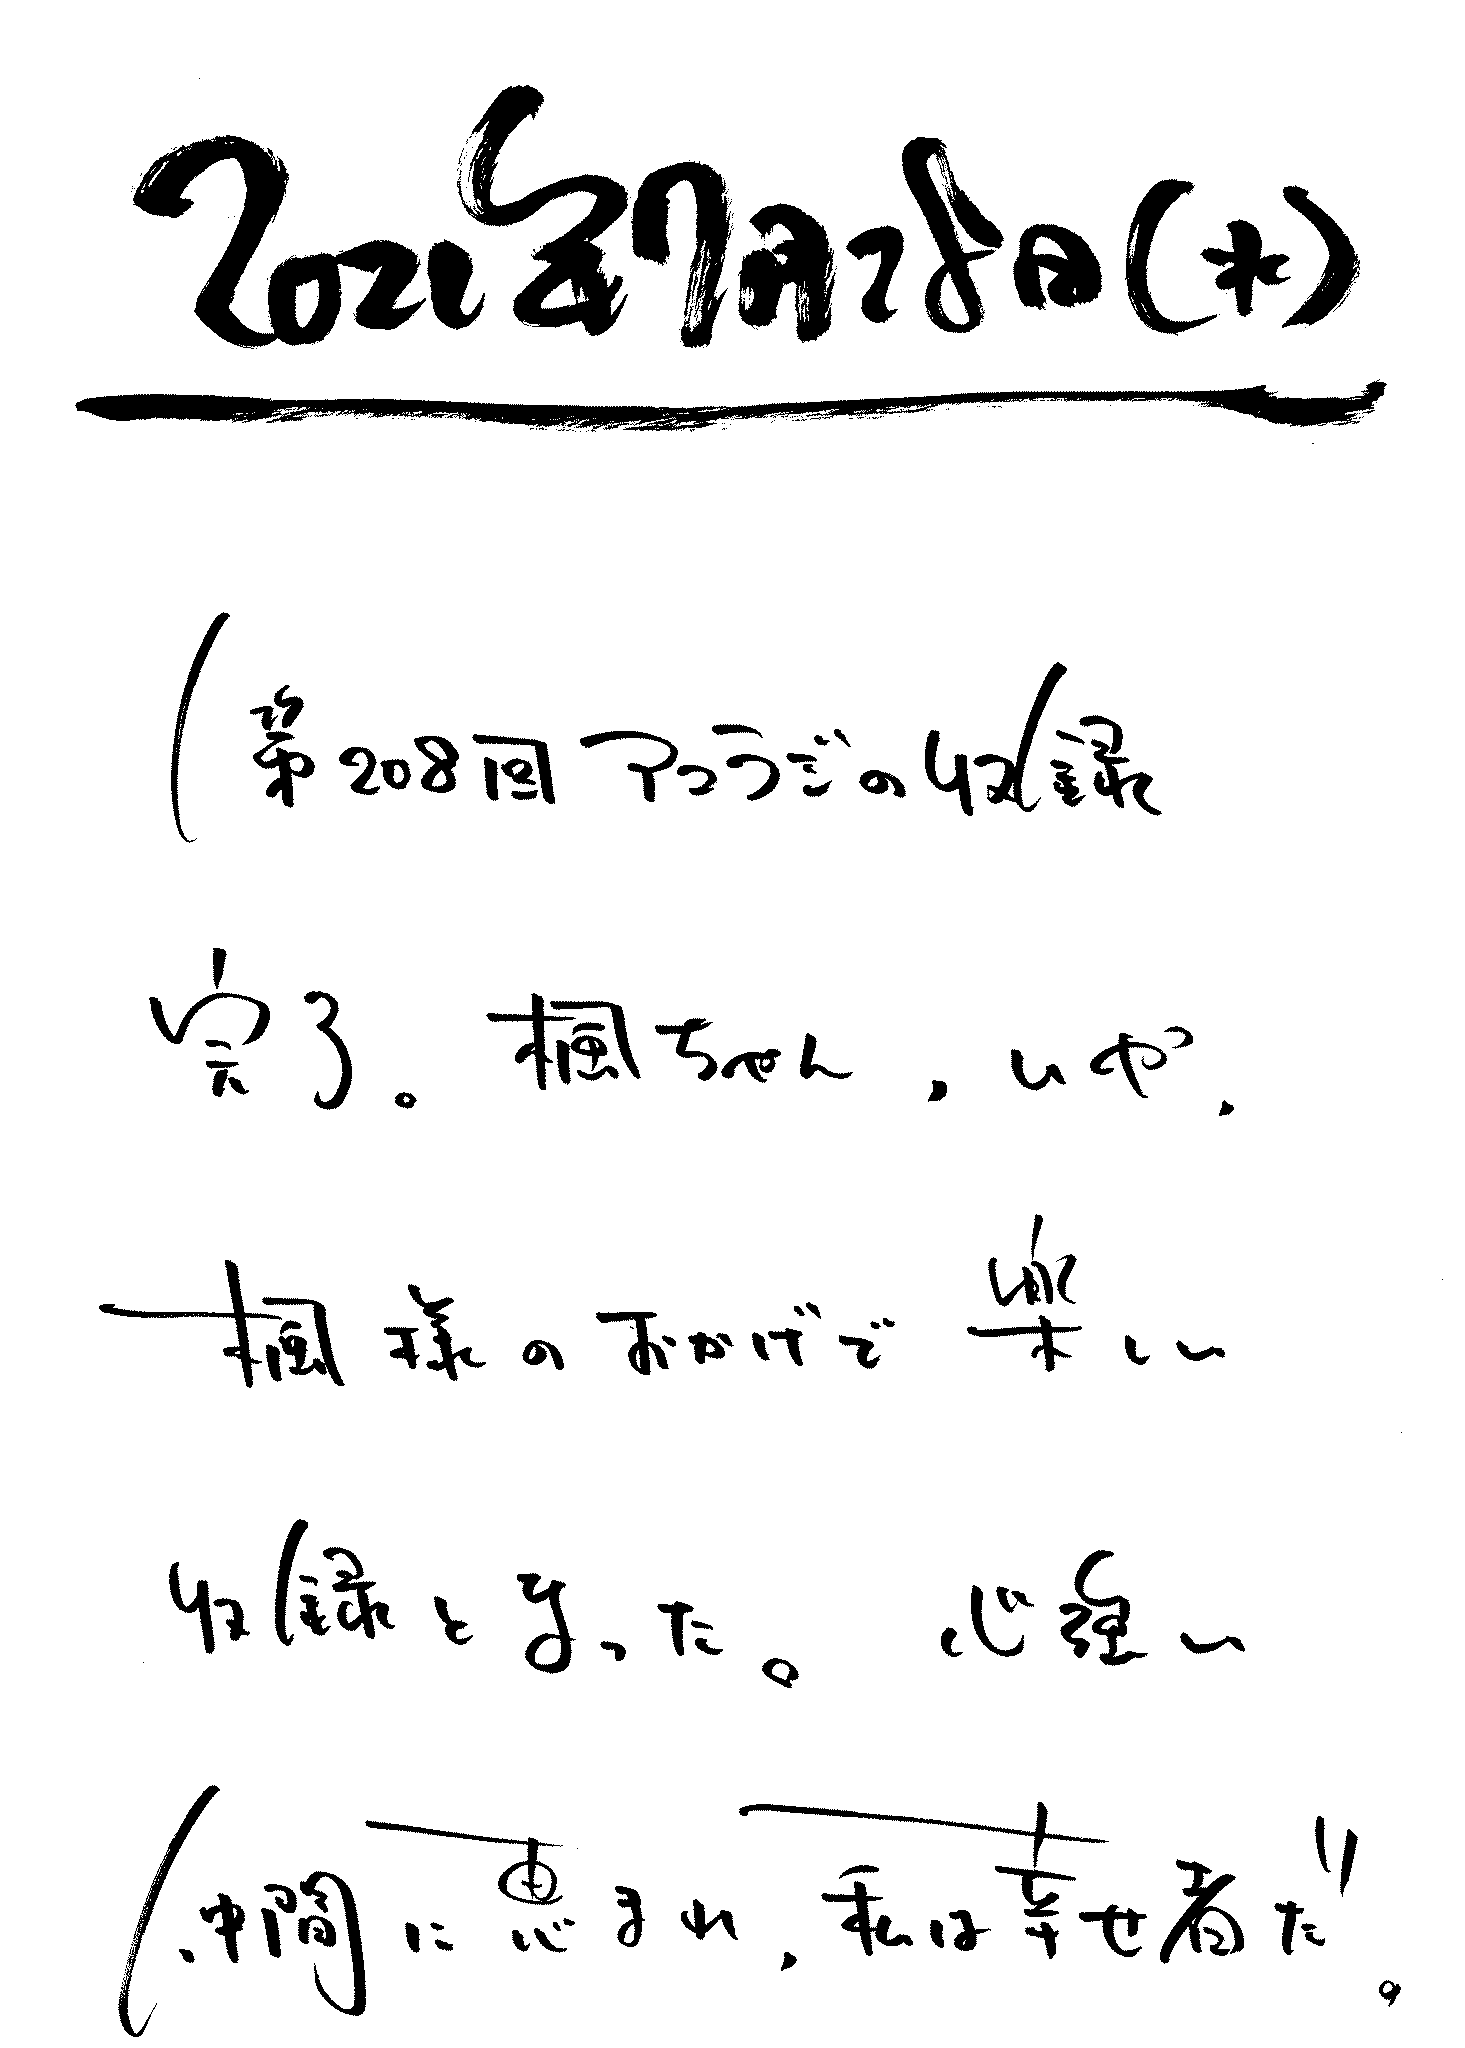 2021年7月28日(水)
第208回アコラジの収録
完了。楓ちゃん、いや、
楓様のおかげで楽しい
収録となった。心強い
仲間に恵まれ、私は幸せ者だ。